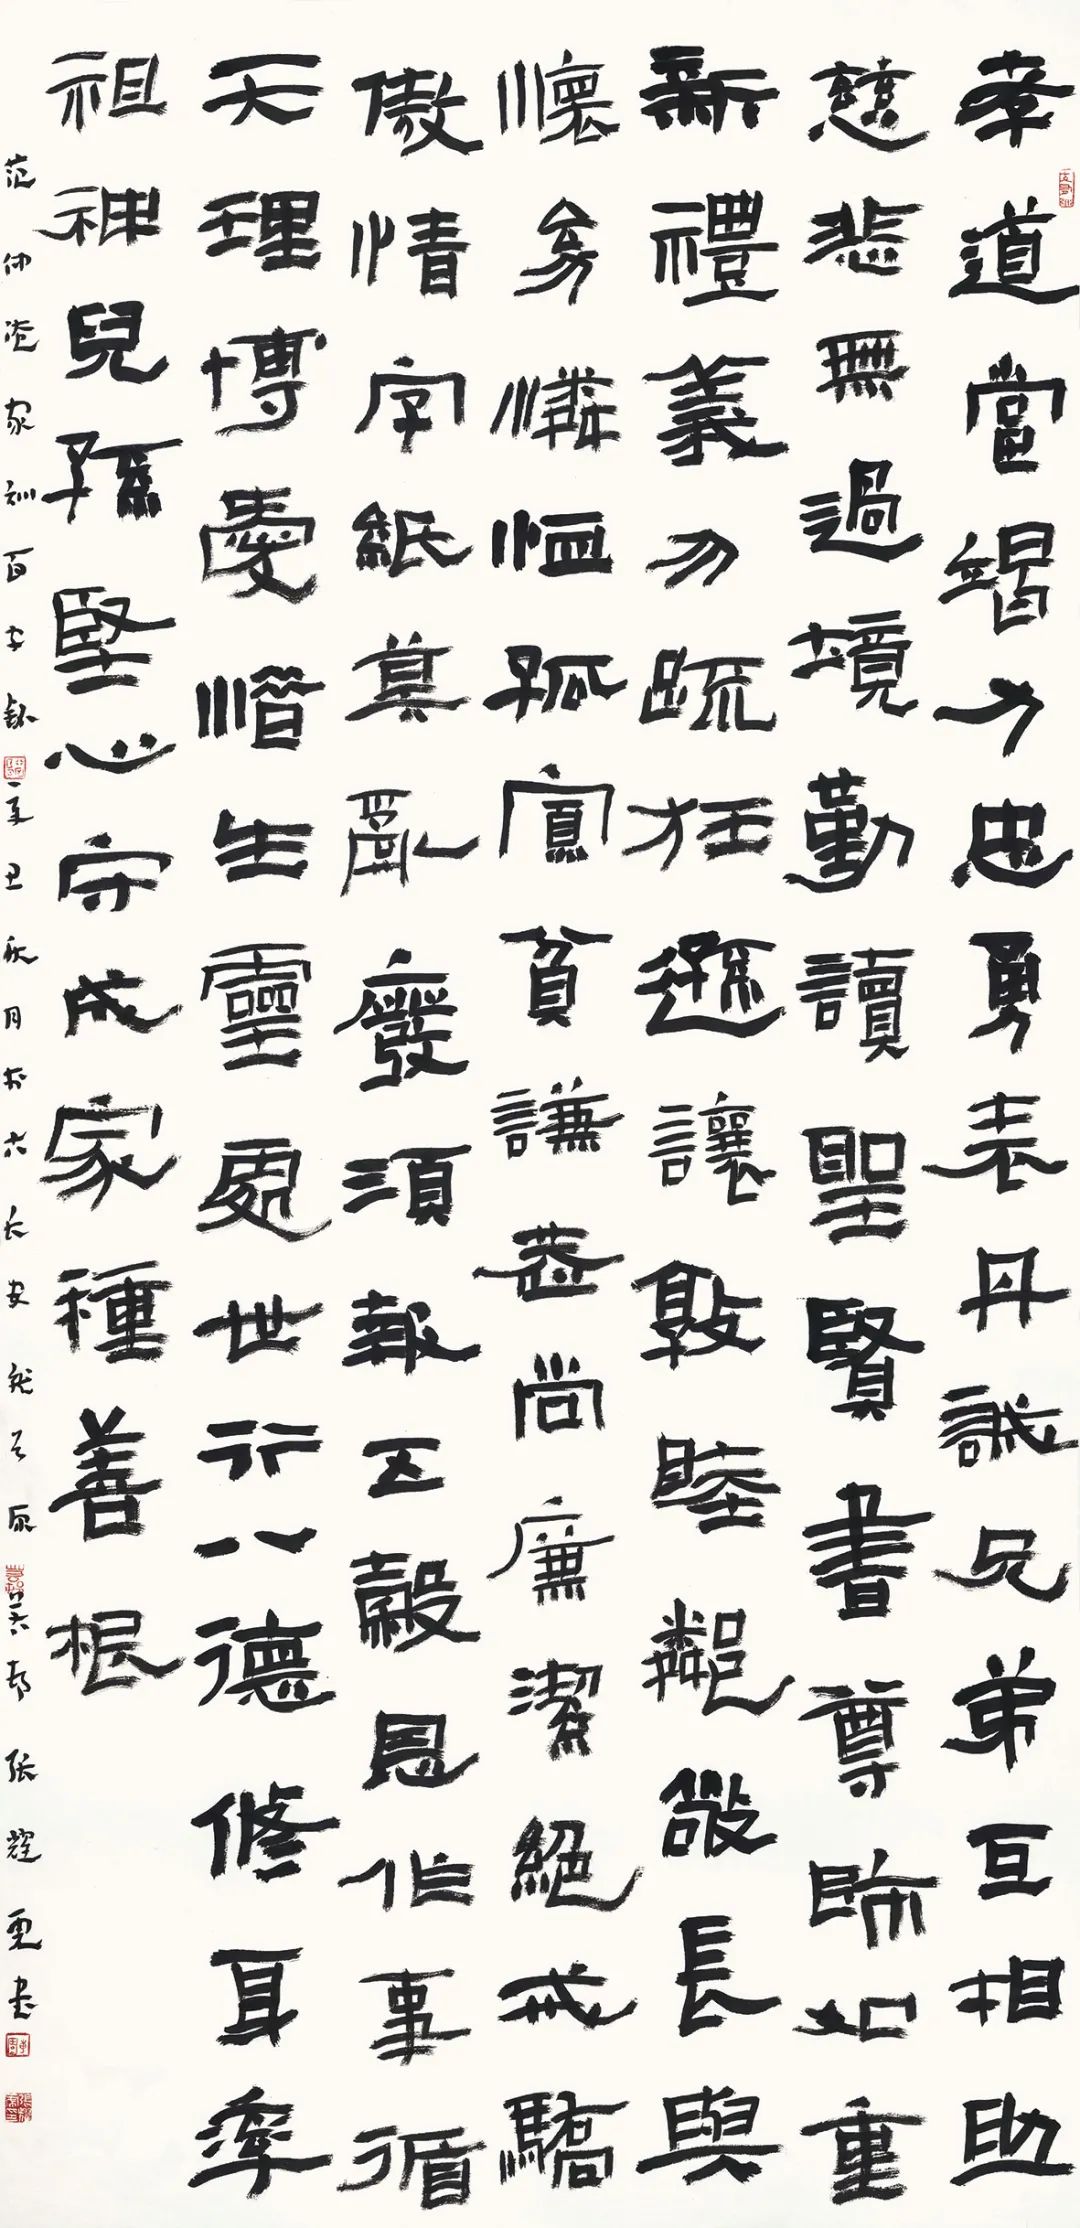 孝道當竭力忠勇表丹誠兄弟互相助
慈悲無過境勤讀聖賢書尊師如重
新禮義勿疏狂遜讓敦睦鄰敬長與
懷幼憐恤孤寡貧謙恭尚廉潔絕戒驕
傲情字紙莫亂廢須報五穀恩作事循
天理博愛惜生靈處世行八德修身率
祖神兒孫堅心守成家種善根
范仲淹家訓百字銘辛丑秋月於長安張書